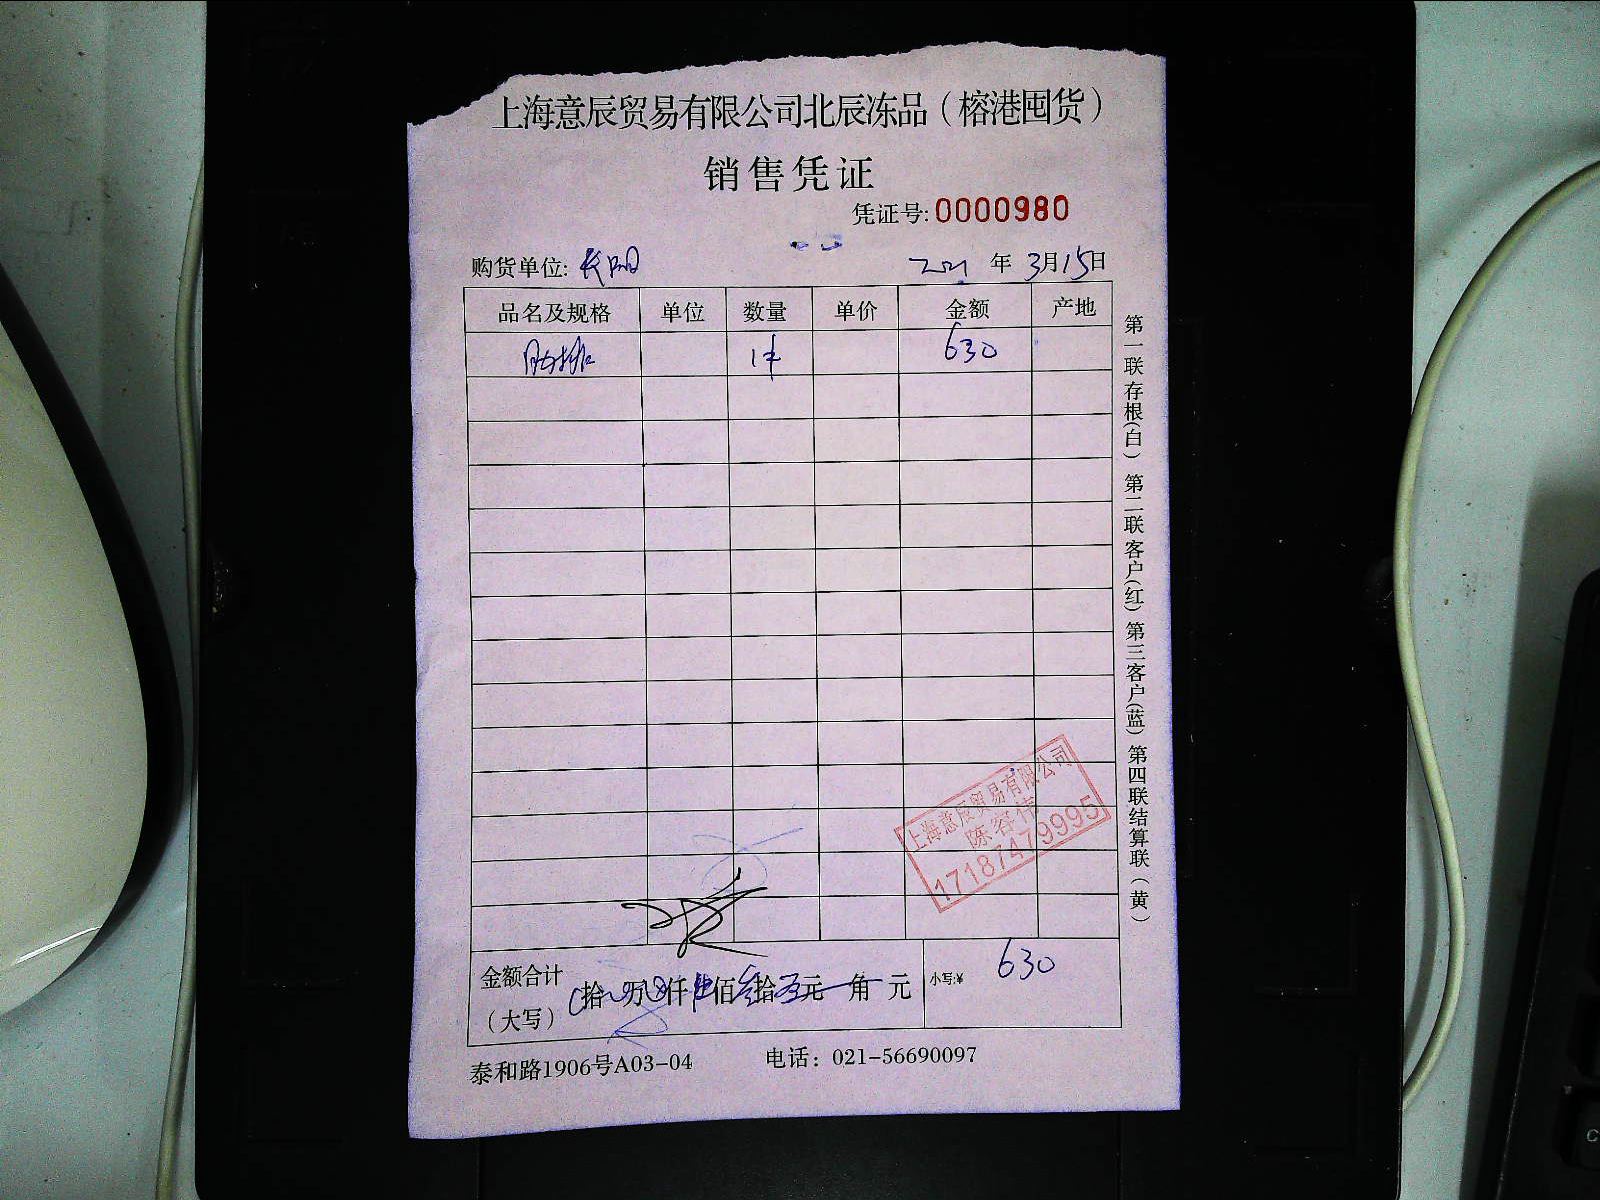 上海意辰贸易有限公司北辰冻品（榕港囤货）
销售凭证
凭证号:0000980
购货单位: 长阳 2021 年 3月15日
品名及规格 单位 数量 单价 金额 产地
肋排 1件 630
第一联存根(白) 第二联客户(红) 第三客户(蓝) 第四联结算联(黄)
上海意辰贸易有限公司
陈容伟
17187479995
金额合计
（大写） 拾 万 仟 佰 拾 元 角 元 小写:¥ 630
泰和路1906号A03-04 电话：021-56690097